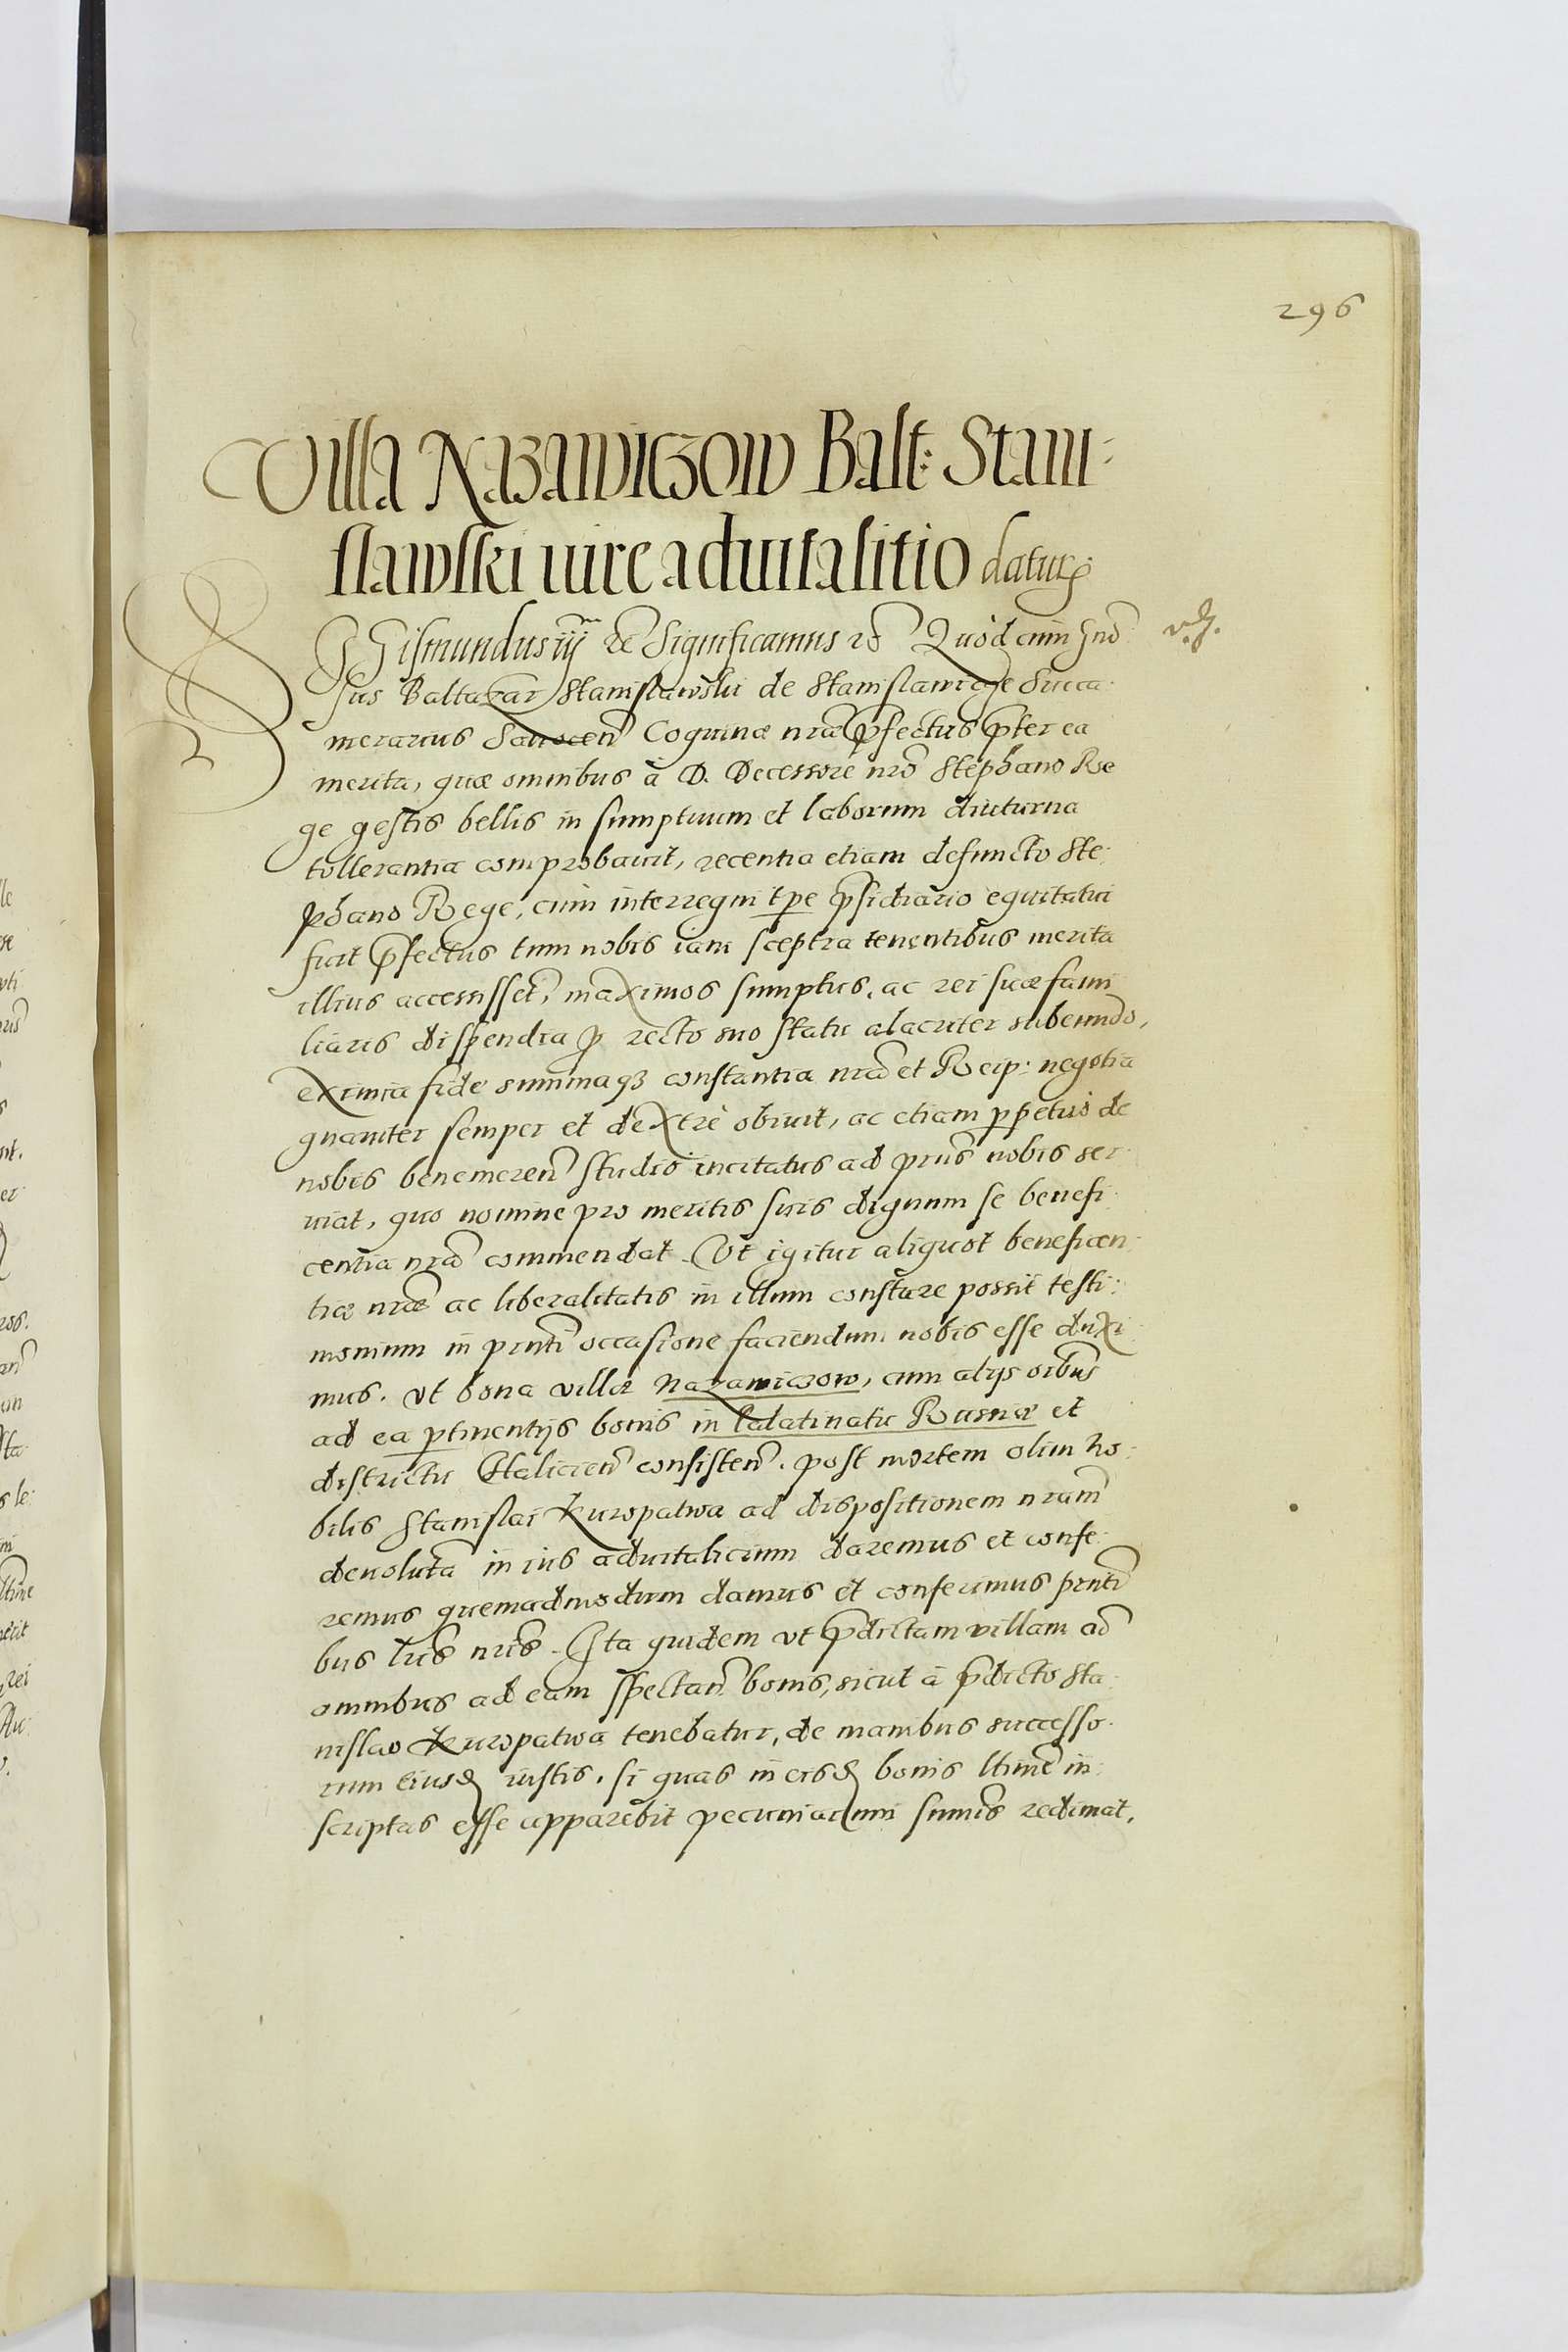 296
Villa Nazawiczow Balt: Stani
slawski iure aduitalitio datur
Sigismundus iii rc Significamus rc Quod cum Gnō
sus Baltazar Stanislawski de Stanislawicze Succa
merarius Sanocen̄ Coquinæ nræ p̄fectus p̄ter ea
merita, quæ omnibus à D. Decessore nr̄o Stephano Re
ge gestis bellis in sumptuum et laborum diuturna
tollerantia comprobauit, recentia etiam defuncto Ste
phano Rege, cum interregni tpe p̄sidiario equitatui
fuit p̄fectus tum nobis iam sceptra tenentibus merita
illius accessisset, maximos sumptus, ac rei suæ fami
liaris dispendia p̄ recto suo statu alacriter subeundo,
eximia fide summaqꝫ constantia nrā et Reip: negotia
gnauiter semper et dextrè obiuit, ac etiam ppetuò de
nobis benemeren̄ studio incitatus ad prius nobis ser
uiat, quo nomine pro meritis suis dignum se benefi
centia nrā commendat. Vt igitur aliquot beneficen
tiæ nræ ac liberalitatis in illum constare possit testi:
monium in pnti occasione faciendum nobis esse duxi
mus. vt bona villæ Nazawiczow, cum alijs oibus
ad ea ptinentijs bonis in Palatinatu Russiæ et
districtu Halicien̄ consisten̄. post mortem olim No:
bilis Stanislai Kuropatwa ad dispositionem nram
deuoluta in ius aduitalicium daremus et confe
remus quemadmodum damus et conferimus pnti
bus lr̄is nr̄is. Ita quidem vt p̄dictam villam cū
omnibus ad eam spectan̄ bonis, sicut à p̄dicto Sta
nislao Kuropatwa tenebatur, de manibus successo
rum eiusd iustis, si quas in eisd bonis ltime in
scriptas esse apparebit pecuniarum sumis redimat,